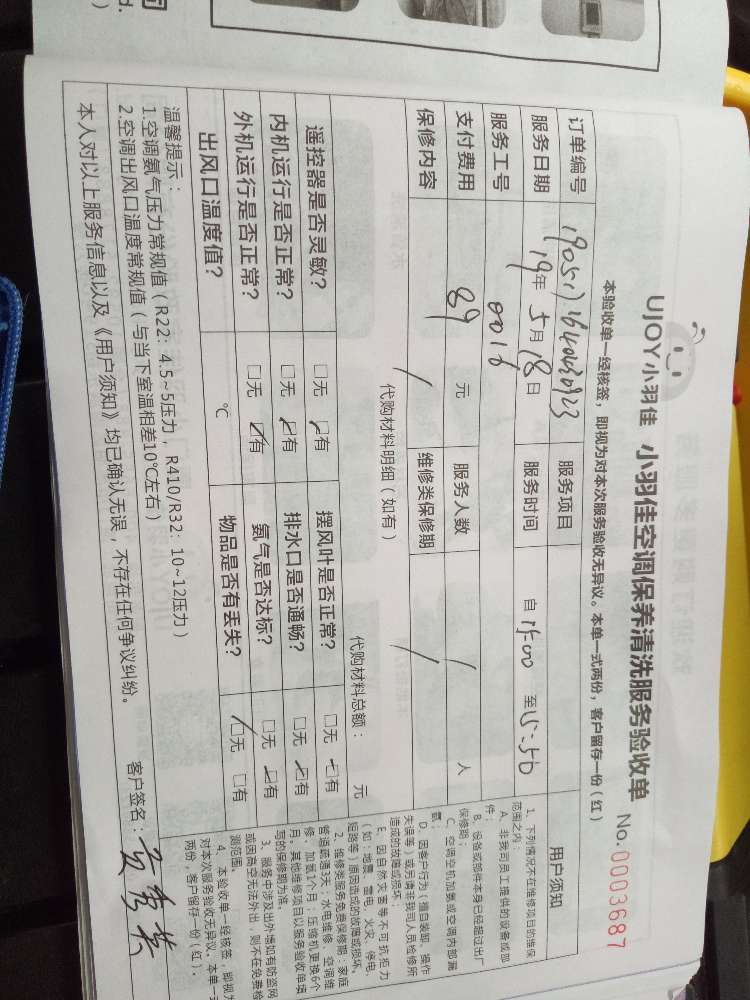 UJOY小羽佳 小羽佳空调保养清洗服务验收单 No.0003687
本验收单一经核签，即视为对本次服务验收无异议。本单一式两份，客户留存一份（红）
订单编号 服务项目
服务日期 19年 5月 18日 服务时间 自 至 15:50
服务工号 0016
支付费用 89 元 服务人数 人
保修内容 / 维修类保修期 /
代购材料明细（如有） 代购材料总额： 元
遥控器是否灵敏？ □无 □有 摆风叶是否正常？ □无 □有
内机运行是否正常？ □无 □有 排水口是否通畅？ □无 □有
外机运行是否正常？ □无 □有 氨气是否达标？ □无 □有
出风口温度值？ ℃ 物品是否有丢失？ □无 □有
温馨提示：
1.空调氨气压力常规值（R22：4.5~5压力，R410/R32：10~12压力）
2.空调出风口温度常规值（与当下室温相差10℃左右）
本人对以上服务信息以及《用户须知》均已确认无误，不存在任何争议纠纷。 客户签名：
用户须知
1、下列情况不在维修项目的维保
范围之内：
A、非我司员工提供的设备或部
件；
B、设备或部件本身已经超过出厂
保修期；
C、空调外机加氨或空调内部漏
氨；
D、因客户行为：擅自装卸、操作
失误等）或另请非我司人员检修所
造成的故障或损坏；
E、因自然灾害等不可抗拒力
（如：地震、雷电、火灾、停电、
短路等）原因造成的故障或损坏。
2、维修类服务免费保修期：家庭
管道疏通3天；水电维修、空调维
修、加氨1个月；压缩机更换6个
月；其他维修项目以服务验收单填
写的保修期为准。
3、服务中涉及出外墙如有防盗网
或因高空无法外出，则不在免费检
测范围。
4、本验收单一经核签，即视为
对本次服务验收无异议。本单一式
两份，客户留存一份（红）。